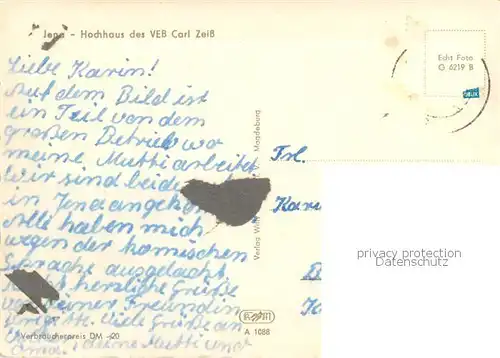 Jena - Hochhaus des VEB Carl Zeiß
Liebe Karin!
Auf dem Bild ist
ein Teil von dem
großen Betrieb wo
meine Mutti arbeitet
Wir sind beide
in Jena
Alle haben mich
wegen der komischen
Sprache ausgelacht
herzliche Grüße
Freundin
Viele Grüße an
deine Mutti und
Oma.
Verbraucherpreis DM -,20
Verlag
Magdeburg
A 1088
Echt Foto
G 6219 B
Frl.
privacy protection
Datenschutz